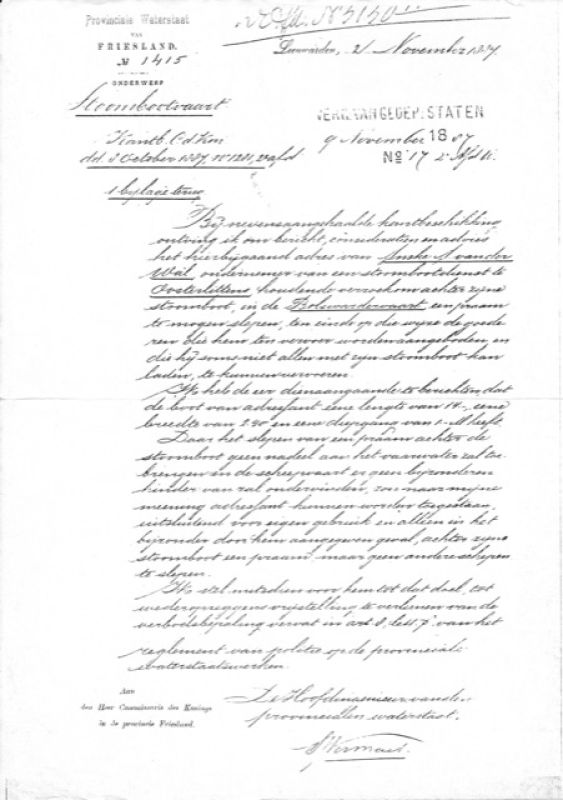 Provinciale Waterstaat
VAN
FRIESLAND.
No 1415
ONDERWERP
Stoombootvaart
Kantb. C. d. Kon.
dd. 8 October 1887, No 1281, 2e afd
1 bylage terug
2e Afd. No 3130
Leeuwarden, 2 November 1887.
STATEN
9 November 1887
No 17 2e Afd
By nevensaangehaalde kantbeschikking
ontving ik om bericht, consideratien en advies
het hierbygaand adres van Aneke A van der
Wal, ondernemer van een stoombootdienst te
Oosterlittens, houdende verzoek om achter zyne
stoomboot, in de Bolswardervaart een praam
te mogen slepen, ten einde op die wyze de goede
ren die hem ten vervoer worden aangeboden, en
die hy soms niet allen met zyn stoomboot kan
laden, te kunnen vervoeren.
Ik heb de eer dienaangaande te berichten, dat
de boot van adressant eene lengte van 14-, eene
breedte van 2.90 en eene diepgang van 1- M heeft.
Daar het slepen van een praam achter de
stoomboot geen nadeel aan het vaarwater zal toe
brengen en de scheepvaart er geen byzonderen
hinder van zal ondervinden, zou naar myne
meening adressant kunnen worden toegestaan,
uitsluitend voor eigen gebruik en alleen in het
byzonder door hem aangegeven geval, achter zyne
stoomboot een praam, maar geen andere schepen
te slepen.
Ik stel mitsdien voor hem tot dat doel, tot
wederopzeggens vrystelling te verleenen van de
verbodsbepaling vervat in art 8, lett. van het
reglement van politie op de provinciale
waterstaatswerken.
De Hoofdingenieur van den
provincialen waterstaat.
Aan
den Heer Commissaris des Konings
in de provincie Friesland.